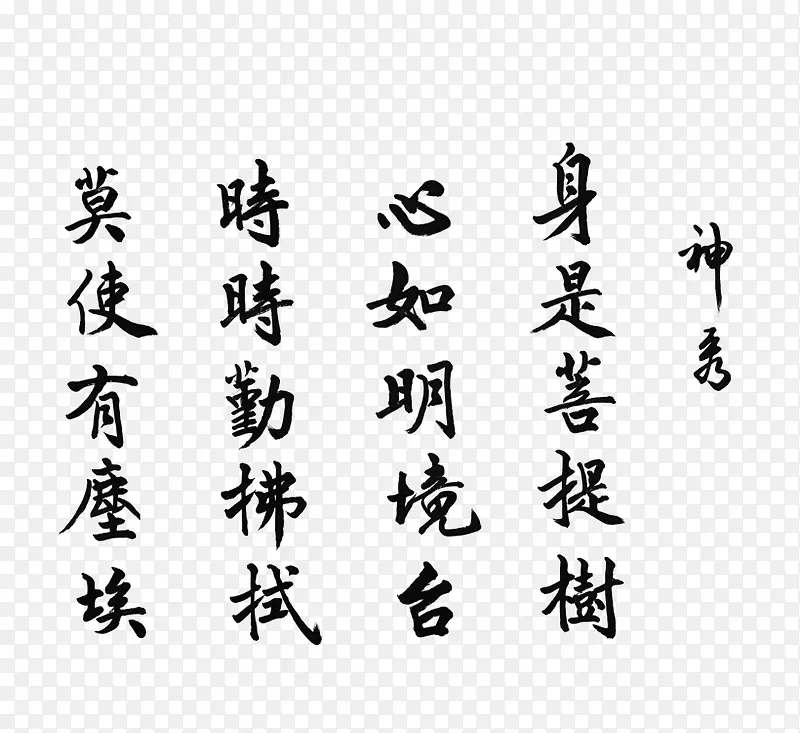 神秀
身是菩提樹
心如明境台
時時勤拂拭
莫使有塵埃